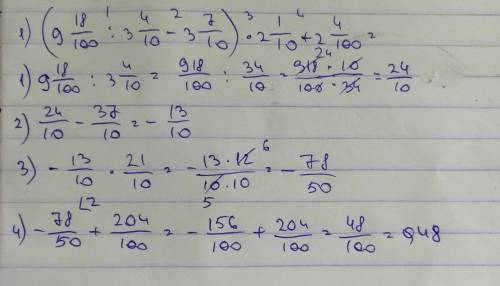 1) (9 18/100 :¹ 3 4/10 -² 3 7/10) ·³ 2 1/10 +⁴ 2 4/100 =
1) 9 18/100 : 3 4/10 = 918/100 : 34/10 = 918 · 10 / 100 · 34 = 24/10
2) 24/10 - 37/10 = - 13/10
3) - 13/10 · 21/10 = - 13 · 12 6 / 10 · 10 5 = - 78/50
4) - 78/50 + 204/100 = - 156/100 + 204/100 = 48/100 = 0,48